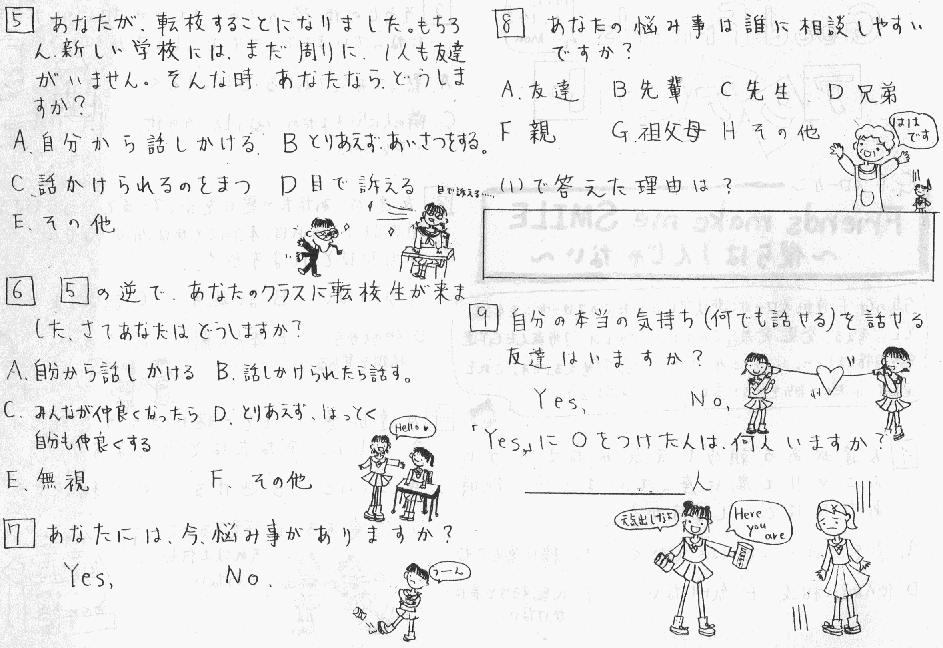 5 あなたが、転校することになりました。もちろ
ん、新しい学校には、まだ周りに、1人も友達
がいません。そんな時 あなたなら、どうしま
すか?
A. 自分から話しかける. B とりあえず、あいさつをする。
C. 話かけられるのをまつ D 目で訴える
目で訴える……
E. その他
6 5の逆で、あなたのクラスに転校生が来ま
した、さてあなたはどうしますか?
A. 自分から話しかける B. 話しかけられたら話す。
C. みんなが仲良くなったら D. とりあえず、ほっとく
自分も仲良くする
Hello♥
E. 無視 F. その他
7 あなたには、今、悩み事がありますか?
Yes, No.
うーん
8 あなたの悩み事は誰に相談しやすい
ですか?
A. 友達 B 先輩 C 先生 D 兄弟
F 親 G. 祖父母 H その他
はは
です
(1)で答えた理由は?
Friends make me SMILE
~僕らは1人じゃない~
9 自分の本当の気持ち(何でも話せる)を話せる
友達はいますか?
Yes, No,
「Yes」に○をつけた人は、何人いますか?
人
元気出しなよ
Here
you
are